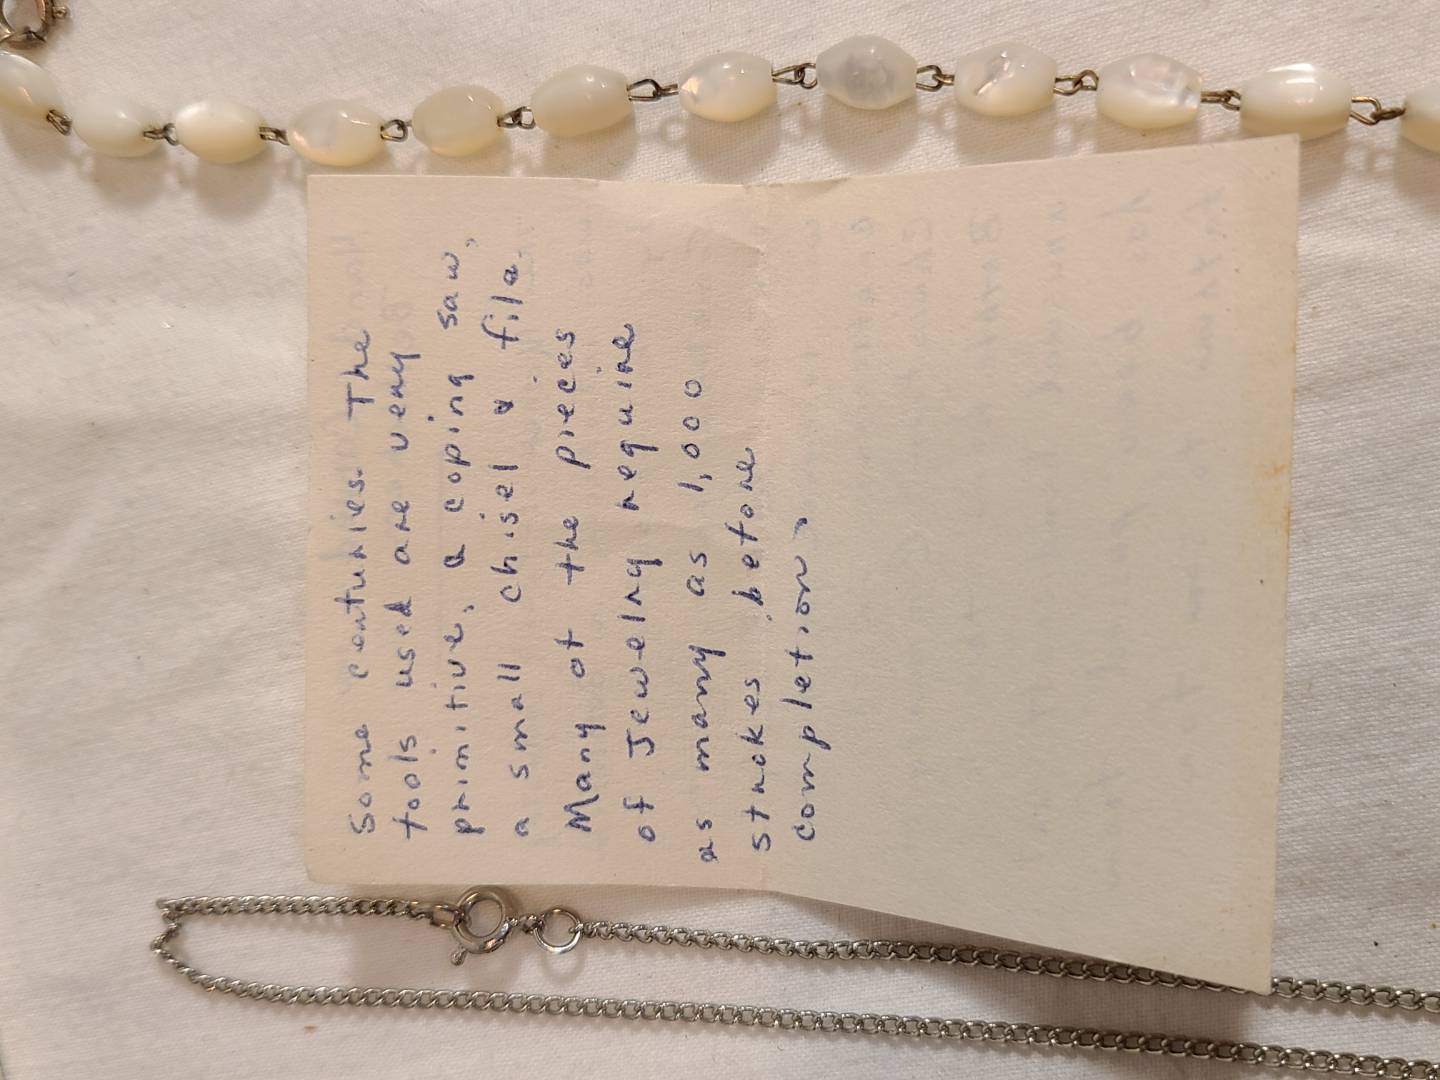 Some centuries. The
tools used are very
primitive, a coping saw,
a small chisel & file.
Many of the pieces
of Jewelry require
as many as 1,000
strokes before
completion.